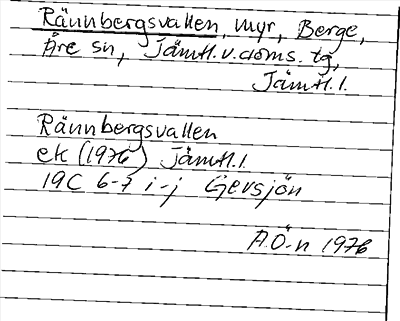 Rännbergsvallen, myr, Berge,
Åre sn, Jämtl. v. doms. tg,
Jämtl. l.
Rännbergsvallen
ek (1976) Jämtl. l.
19C 6-7 i-j Gevsjön
A.Ö-n 1976